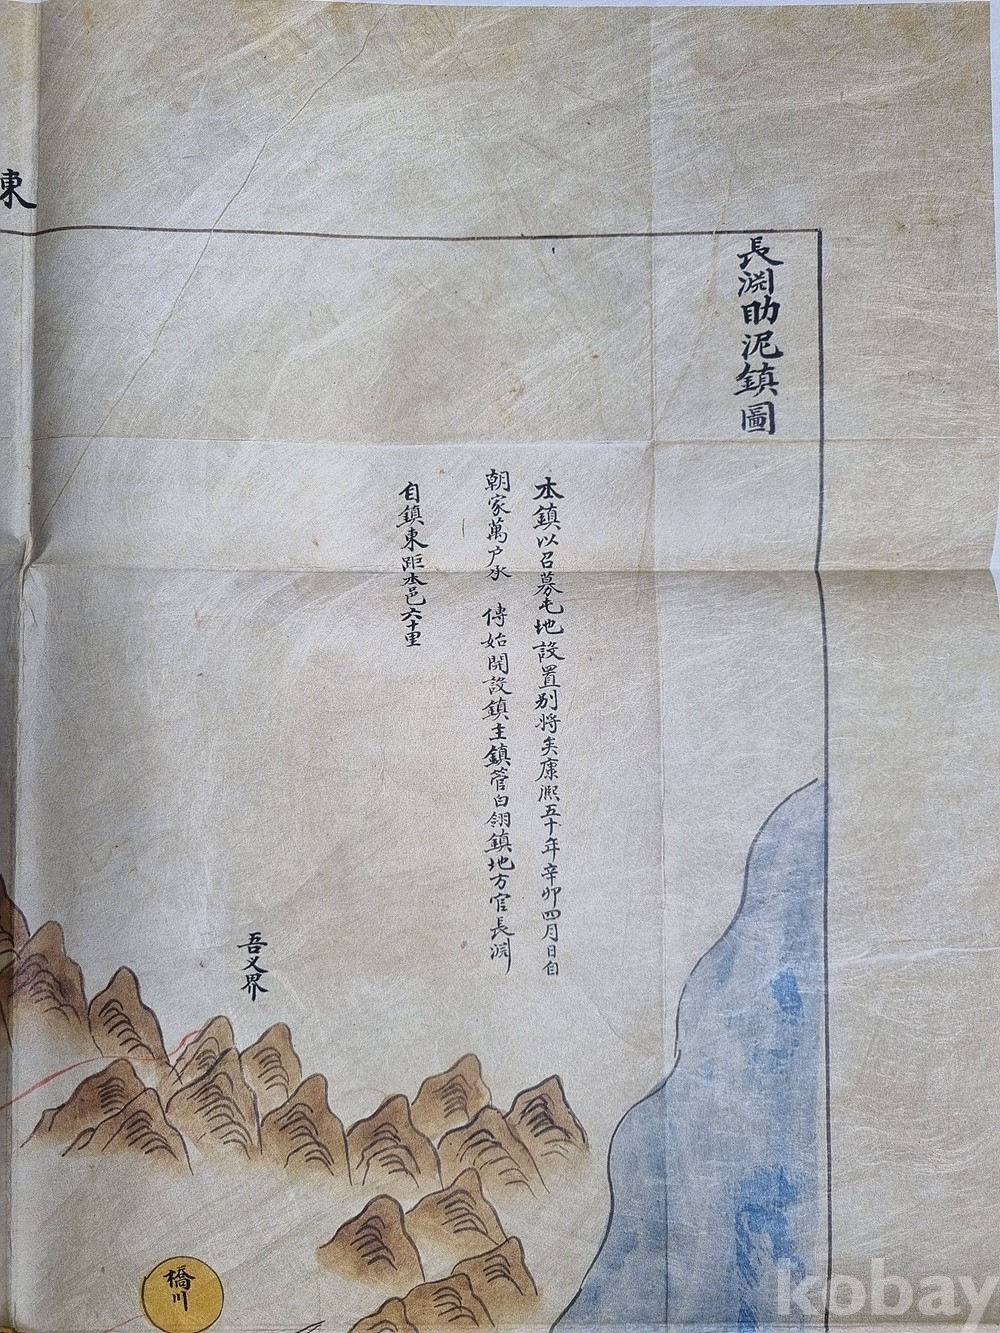 長淵助泥鎮圖
本鎮以召募屯地設置別將矣康熙五十年辛卯四月日自
朝家萬户承 傳始開設鎮主鎮管白翎鎮地方官長淵
自鎮東距本邑六十里
吾叉界
東
橋川
kobay